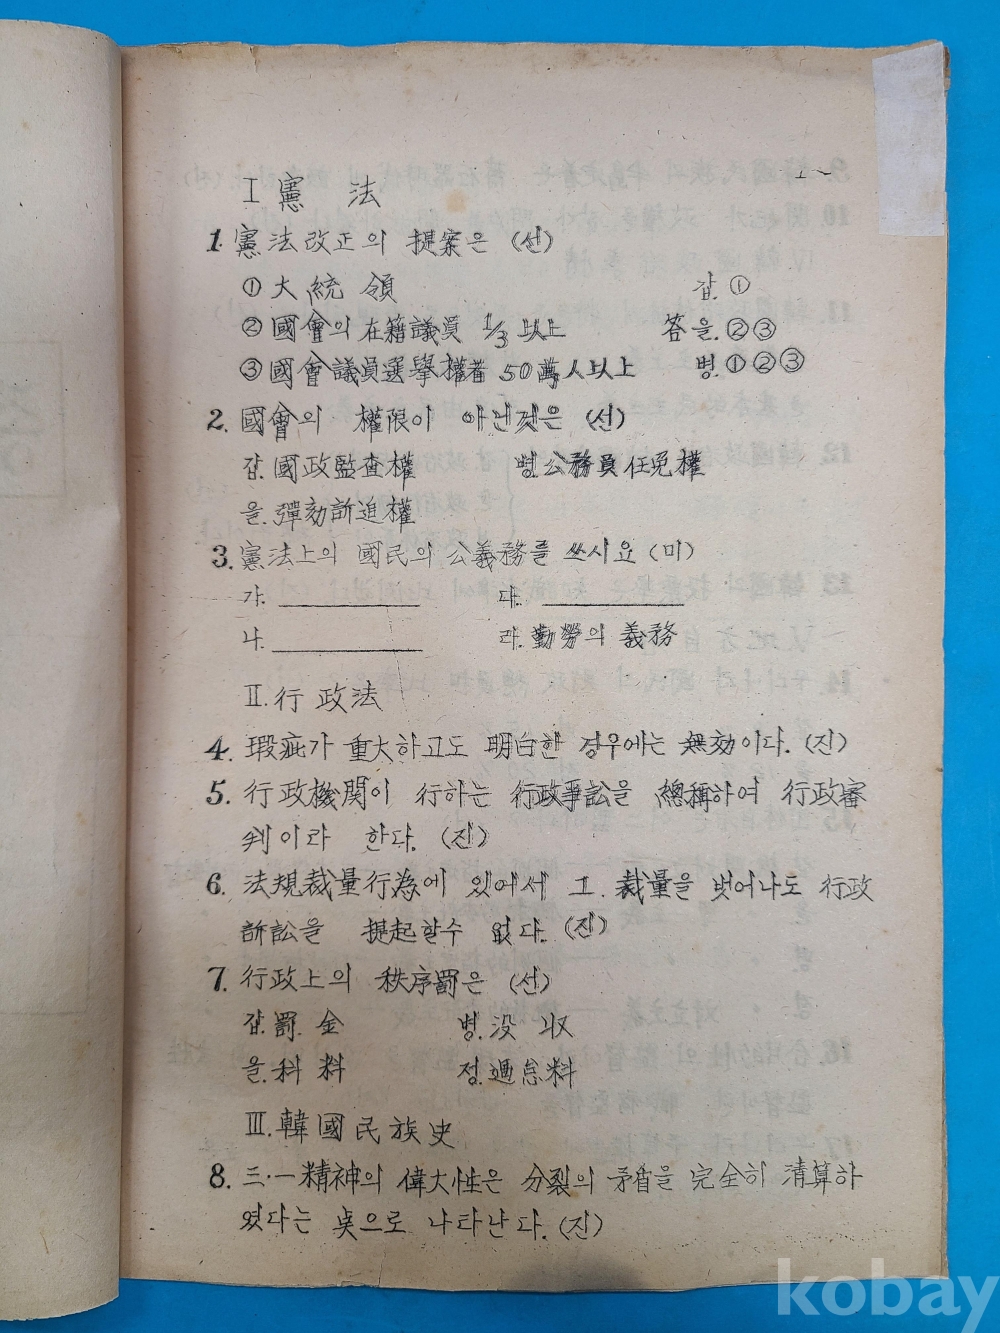 Ⅰ 憲 法
1. 憲法改正의 提案은 (선)
① 大統領 갑. ①
② 國會의 在籍議員 1/3 以上 答 을. ②③
③ 國會議員選擧權者 50萬人以上 병. ①②③
2. 國會의 權限이 아닌것은 (선)
갑. 國政監査權 병. 公務員任免權
을. 彈劾訴追權
3. 憲法上의 國民의 公義務를 쓰시요 (미)
가. 다.
나. 라. 勤勞의 義務
Ⅱ. 行政法
4. 瑕疵가 重大하고도 明白한 경우에는 無効이다. (진)
5. 行政機関이 行하는 行政爭訟을 總稱하여 行政審
判이라 한다. (진)
6. 法規裁量行為에 있어서 그. 裁量을 벗어나도 行政
訴訟을 提起할수 없다. (진)
7. 行政上의 秩序罰은 (선)
갑. 罰. 金 병. 没 収
을. 科 料 정. 過怠料
Ⅲ. 韓國民族史
8. 三·一精神의 偉大性은 分裂의 矛盾을 完全히 清算하
였다는 点으로 나타난다. (진)
kobay